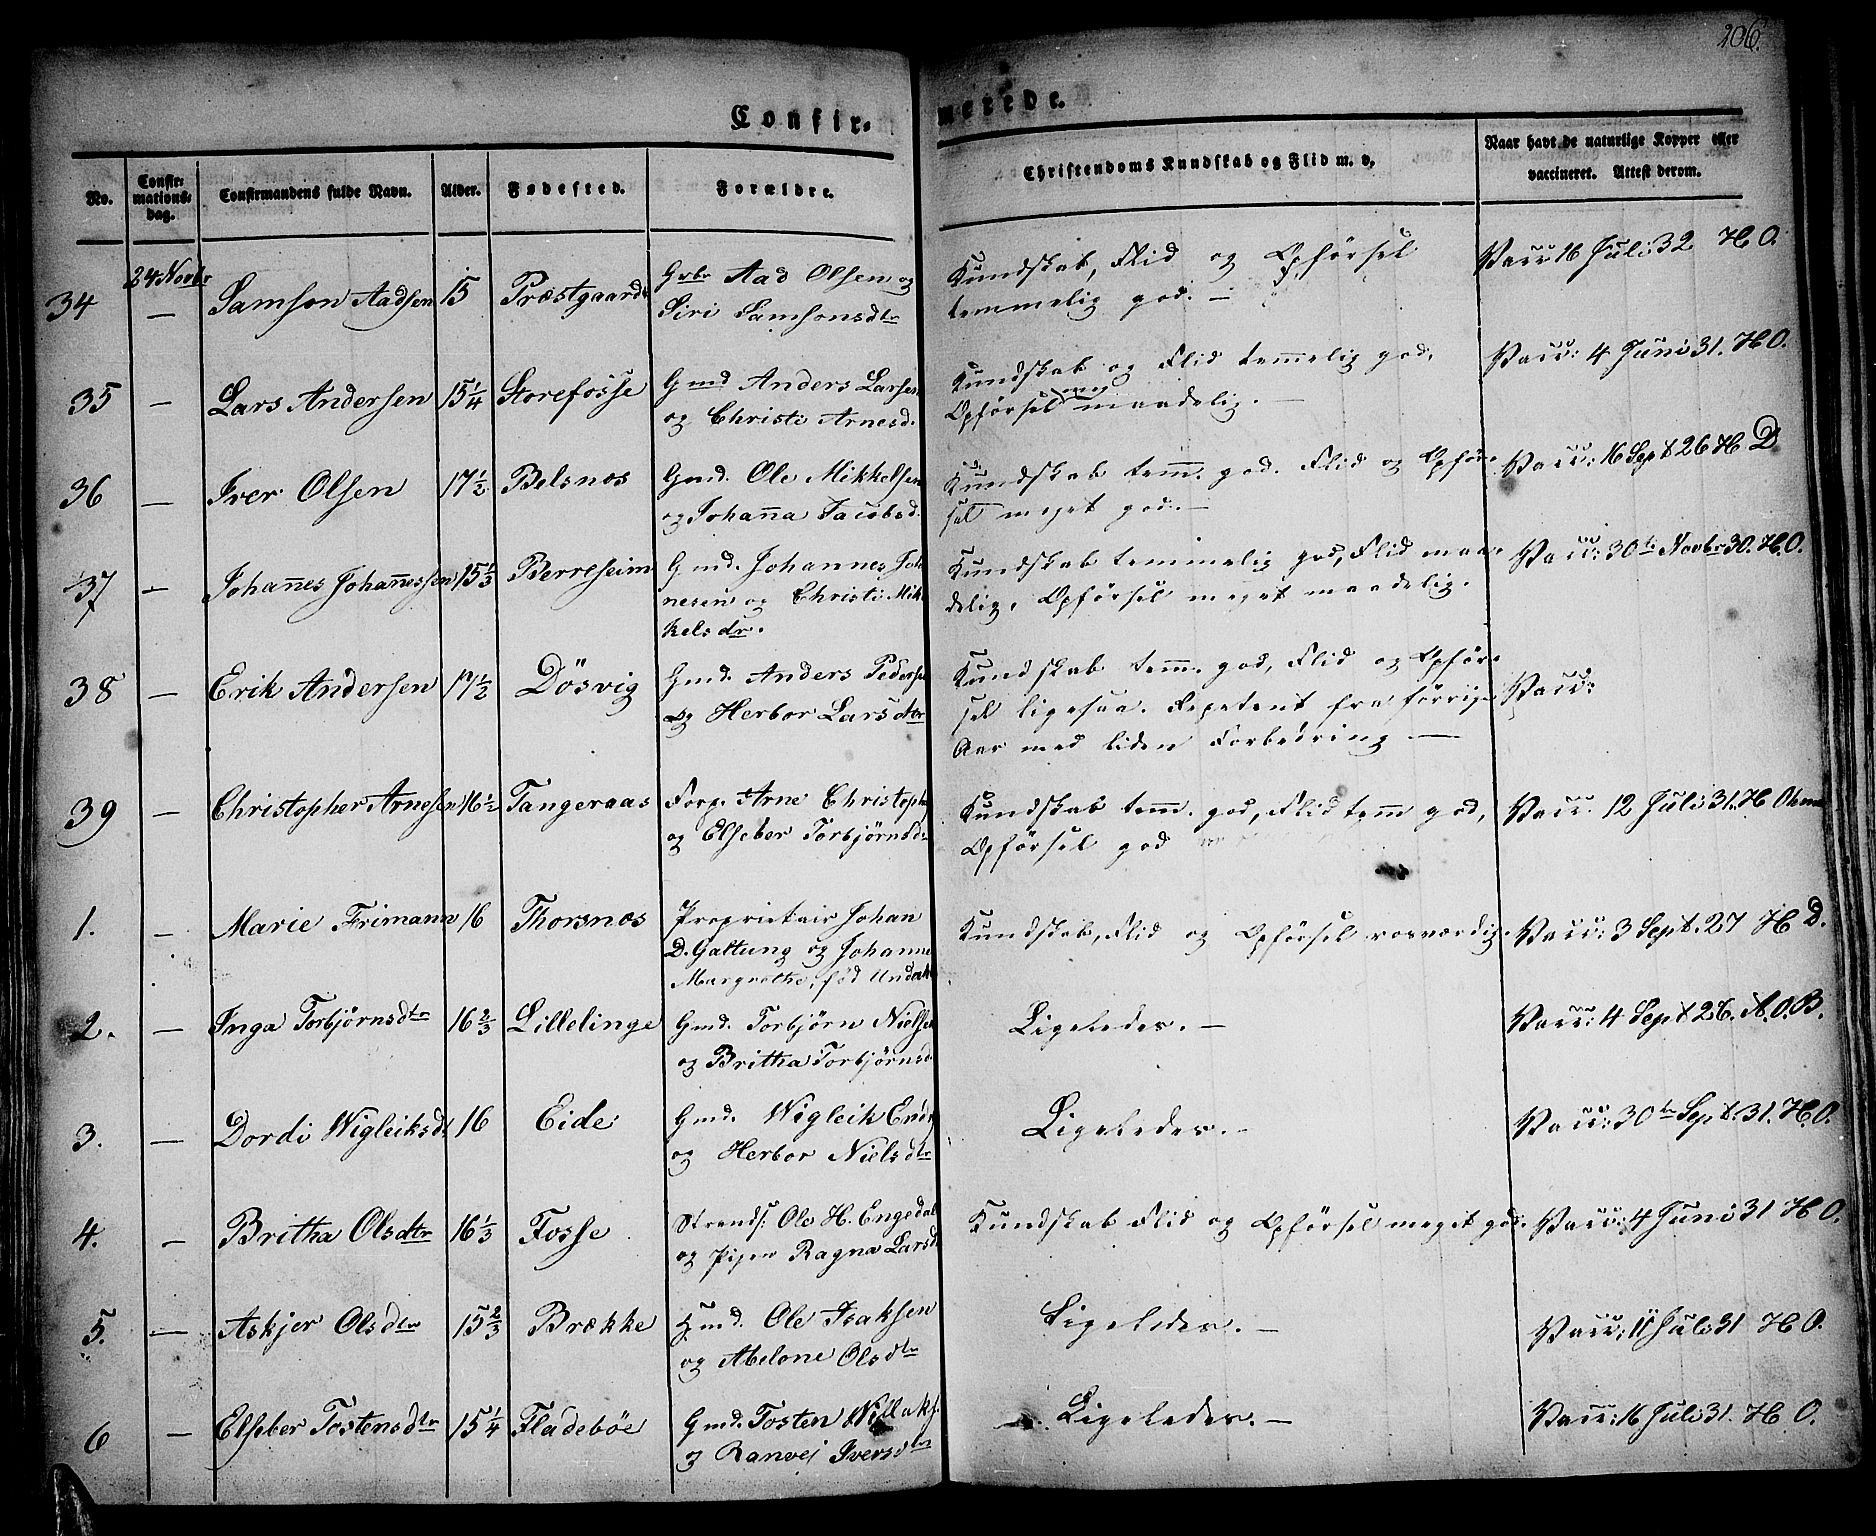 206.
Confir- merede.
No. Confirmationsdag. Confirmandens fulde Navn. Alder. Fødested. Forældre. Christendoms Kundskab og Flid m. v. Naar havt de naturlige Kopper eller vaccineret. Attest derom.
34 24 Novbr — Samson Aadsen 15 Præstgaard Gbr Aad Olsen og Siri Samsonsdtr Kundskab, Flid og Opførsel temmelig god. — Vacc 16 Juli 32 H O.
35 — Lars Andersen 15 1/4 Storefosse Gmd Anders Larsen og Christi Arnesd. Kundskab og Flid temmelig god, Opførsel meg maadelig. — Vacc: 4 Juni 31. H O.
36 — Iver Olsen 17 1/2 Belsnæs Gmd. Ole Mikkelsen og Johanna Jacobsd. Kundskab tem. god. Flid og Opførsel meget god. — Vacc: 16 Sept 26 H D
37 — Johannes Johannessen 15 1/3 Berreheim Gmd. Johannes Johnesen og Christi Mikkelsdr. Kundskab temmelig god, Flid maadelig, Opførsel meget maadelig. Vacc: 30te Novbr 30. H. O.
38 — Erik Andersen 17 1/2 Dösvig Gmd. Anders Pederse og Herbor Larsdtr Kundskab tem. god, Flid og Opførsel ligesaa. Repetent fra forrige Aar med liden Forbedring — Vacc:
39 — Christopher Arnesen 16 1/2 Tangeraas Forp. Arne Christoph og Elseber Torbjørnsd Kundskab tem. god, Flid tem god, Opførsel god Vacc. 12 Juli 31. H
1. — Marie Frimann 16 Thorsnæs Proprietair Johan D. Galtung og Johanne Margrethe, fød Undahl Kundskab, Flid og Opførsel rosværdig. Vacc: 3 Sept. 27 H D.
2. — Inga Torbjørnsdtr 16 2/3 Lillelinge Gmd. Torbjørn Nielse og Britha Torbjørnsd Ligeledes. — Vacc: 4 Sept 26. A. O. B.
3. — Dordi Wigleiksdt 16 Eide Gmd. Wigleik Endr og Herbor Nielsdtr Ligeledes. — Vacc: 30te Sept. 31. H. O.
4. — Britha Olsdtr 16 1/3 Fosse Strands: Ole H. Engedal og Pigen Ragna Larsd Kundskab Flid og Opførsel meget god. Vacc: 4 Juni 31 H O.
5. — Askjer Olsdtr 15 2/3 Brække Hmd. Ole Isaksen og Abelone Olsdtr Ligeledes. — Vacc: 11 Juli 31 H O.
6 — Elseber Tostensdtr 15 1/4 Fladebøe Gmd. Tosten og Ranvei Iversdtr Ligeledes. — Vacc: 16 Juli 31. H O.